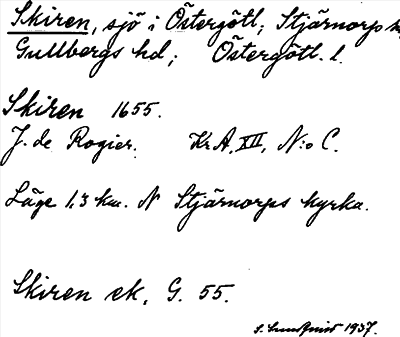 Skiren, sjö i Östergötl; Stjärnorp
Gullbergs hd; Östergötl. l.
Skiren 1655.
J. de Rogier. KrA. XII, N:o C.
Läge 1,3 km. N Stjärnorps kyrka.
Skiren ek, G. 55.
S. Lundqvist 1937.